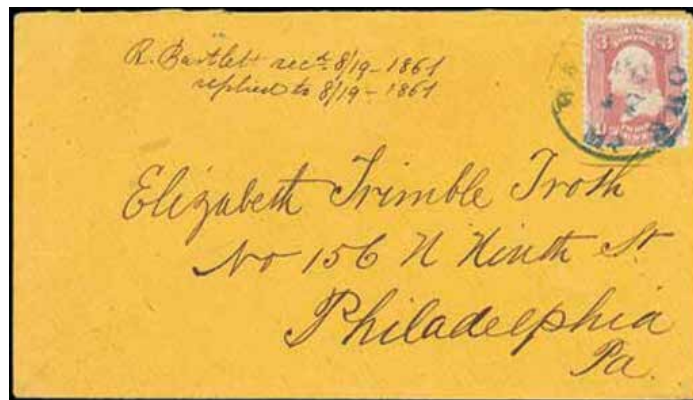 R. Bartlett recd. 8/19 - 1861
replied to 8/19 - 1861
3 3
Elizabeth Trimble Troth
No 156 N Ninth St.
Philadelphia
Pa.